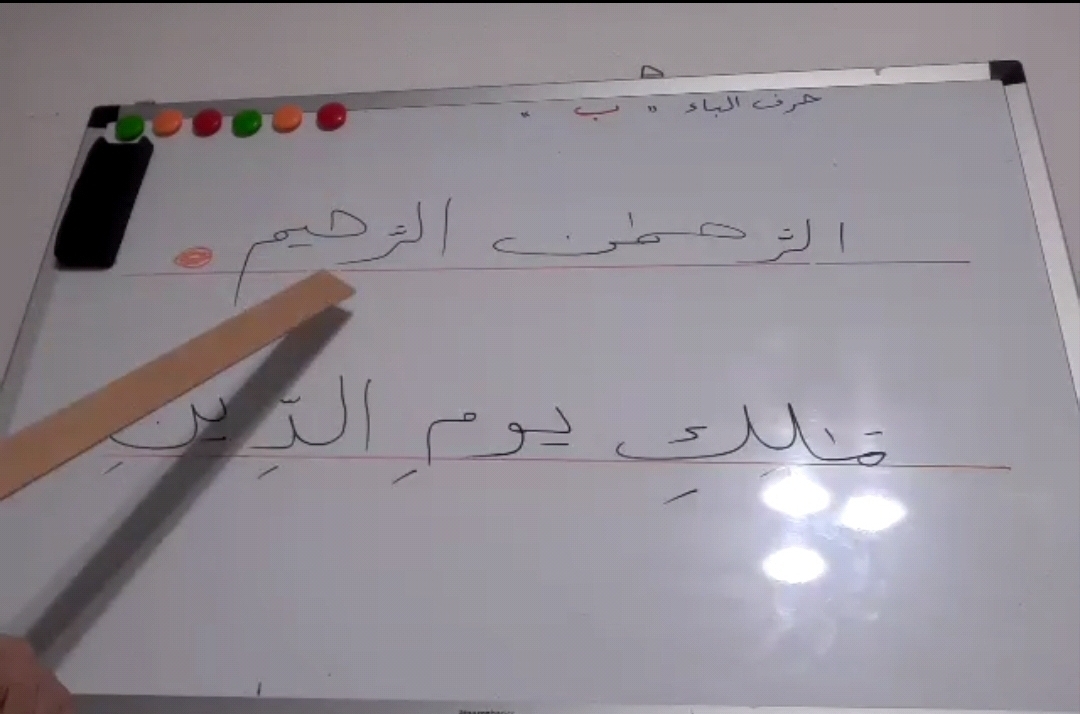 حرف الباء " ب "
الرّحمٰن الرّحيم
مَٰلِكِ يومِ الدِّينِ